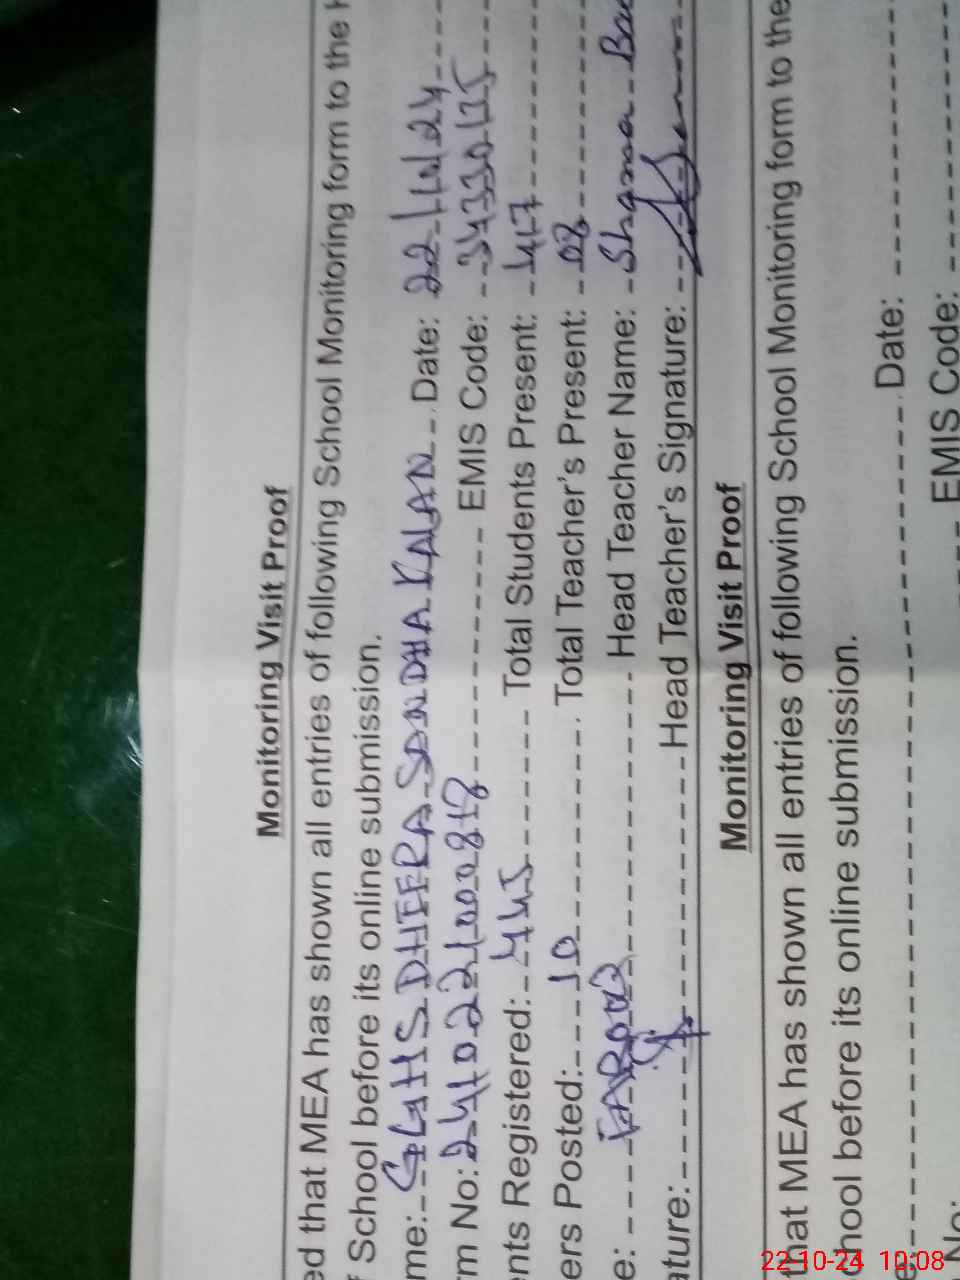 Monitoring Visit Proof
ed that MEA has shown all entries of following School Monitoring form to the
School before its online submission.
me: GGHS DHEERA SANDHA KALAN Date: 22/10/24
m No: 241022000818 EMIS Code: 34330135
nts Registered: 445 Total Students Present: 417
ers Posted: 10 Total Teacher's Present: 08
e: FAROOQ Head Teacher Name: Shamaa
ature: Head Teacher's Signature:
Monitoring Visit Proof
that MEA has shown all entries of following School Monitoring form to the
chool before its online submission.
e Date:
No: EMIS Code:
22-10-24 10:08